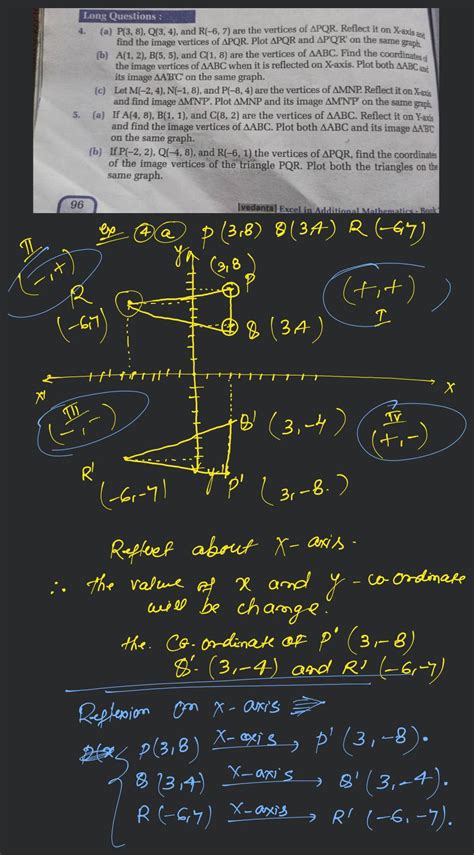 Long Questions :
4. (a) P(3, 8), Q(3, 4), and R(-6, 7) are the vertices of ΔPQR. Reflect it on X-axis and
find the image vertices of ΔPQR. Plot ΔPQR and ΔP'Q'R' on the same graph.
(b) A(1, 2), B(5, 5), and C(1, 8) are the vertices of ΔABC. Find the coordinates of
the image vertices of ΔABC when it is reflected on X-axis. Plot both ΔABC and
its image ΔA'B'C' on the same graph.
(c) Let M(-2, 4), N(-1, 8), and P(-8, 4) are the vertices of ΔMNP. Reflect it on X-axis
and find image ΔM'N'P'. Plot ΔMNP and its image ΔM'N'P' on the same graph.
5. (a) If A(4, 8), B(1, 1), and C(8, 2) are the vertices of ΔABC. Reflect it on Y-axis
and find the image vertices of ΔABC. Plot both ΔABC and its image ΔA'B'C'
on the same graph.
(b) If P(-2, 2), Q(-4, 8), and R(-6, 1) the vertices of ΔPQR, find the coordinates
of the image vertices of the triangle PQR. Plot both the triangles on the
same graph.
96
vedanta Excel in Additional Mathematics - Book
4 a P(3,8) Q(3,4) R(-6,7)
II
(-,+)
y
(3,8)
P
R
(-6,7)
(+,+)
I
Q (3,4)
x'
x
III
(-,-)
Q' (3,-4)
IV
(+,-)
R'
(-6,-7)
y'
P' (3,-8.)
Reflect about X-axis.
∴ the value of x and y-co-ordinate
will be change.
the. Co-ordinate of P' (3,-8)
Q'. (3,-4) and R' (-6,-7)
Reflexion on x-axis ⇒
P(3,8) X-axis → P' (3,-8).
Q (3,4) X-axis → Q' (3,-4).
R(-6,7) X-axis → R' (-6,-7).